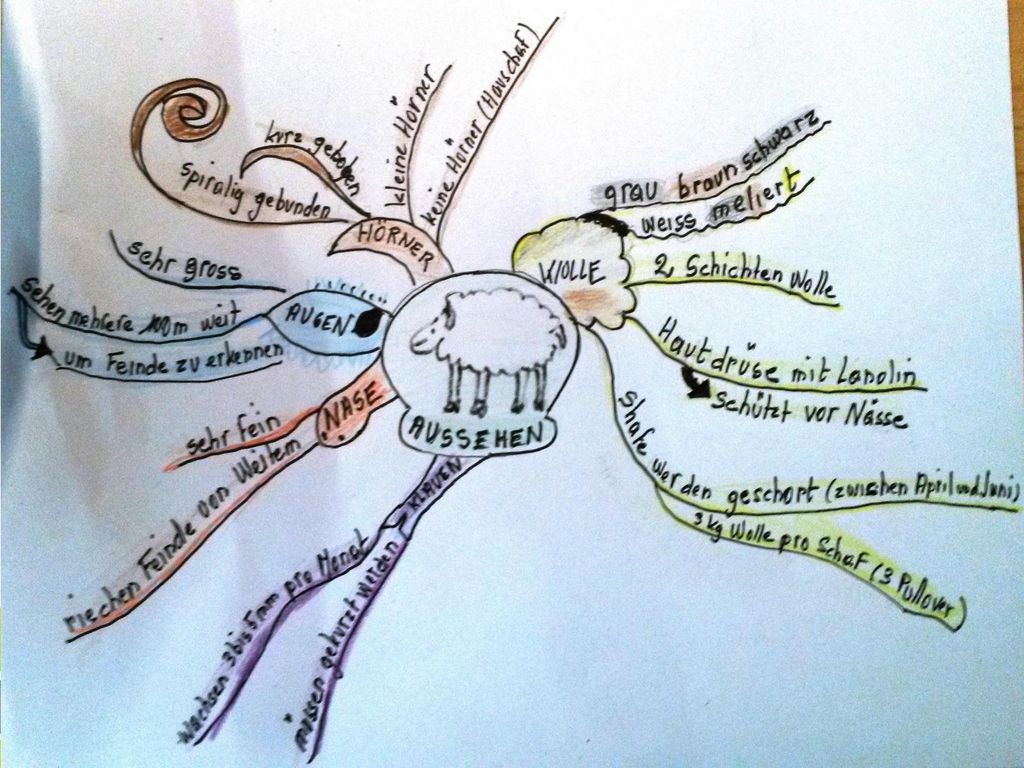 AUSSEHEN
HÖRNER
spiralig gebunden
kurz gebogen
kleine Hörner
keine Hörner (Hauschaf)
WOLLE
grau braun schwarz
weiss meliert
2 Schichten Wolle
Hautdrüse mit Lanolin
Schützt vor Nässe
Shafe werden geschort (zwischen April und Juni)
3 kg Wolle pro Schaf (3 Pullover)
AUGEN
sehr gross
sehen mehrere 100m weit
um Feinde zu erkennen
NASE
sehr fein
riechen Feinde von Weitem
KLAUEN
wachsen 3 bis 5 mm pro Monat
müssen gekürzt werden